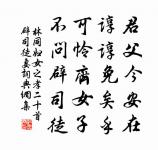 君父今安在
諄諄免矣乎
可怜齊女子
不問辟司徒
林同婦女之孝二十首
辟司徒妻詞典網集